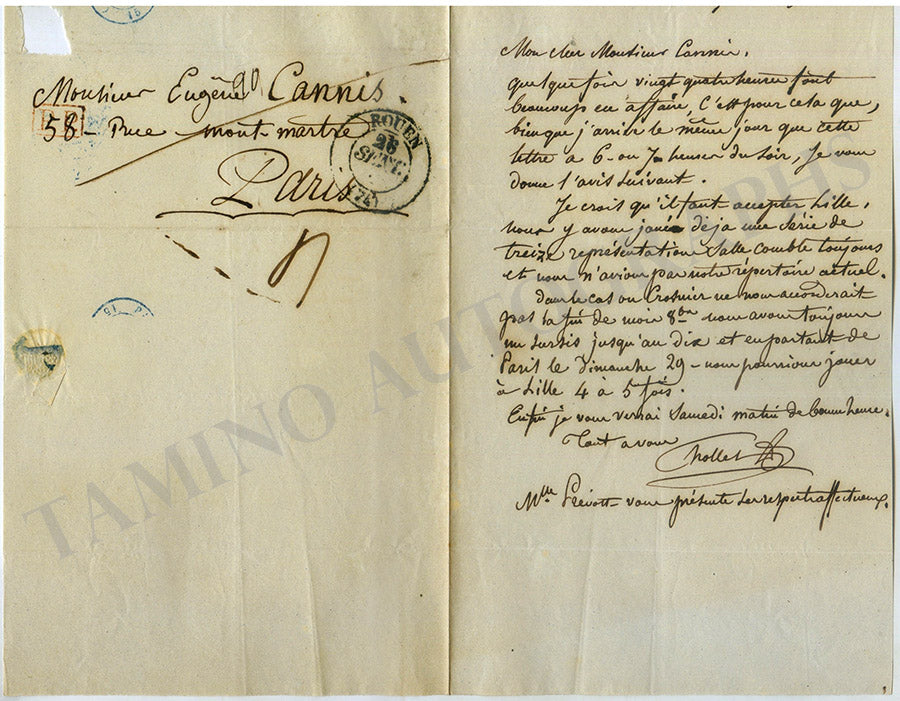 Monsieur Eugène Cannis.
58 - Rue - mont-martre
Paris
ROUEN
SEPT.
(74)
Mon cher Monsieur Cannis,
quelque foir vingt quatre heures font
beaucoup en affaire, C'est pour cela que,
bienque j'arrive le même jour que cette
lettre a 6 - ou 7 heures du soir, je vous
donne l'avis suivant.
Je crois qu'il faut accepter Lille,
nous y avons joué déja une série de
treize représentations Salle comble toujours
et nous n'avions pas notre répertoire actuel.
Dans le cas ou Crosnier ne nous accorderait
pas la fin de mois 8bre nous avons toujours
un sursis jusqu'au dix et en partant de
Paris le Dimanche 29 - nous pourrions jouer
à Lille 4 à 5 fois.
Enfin je vous verrai Samedi matin de bonne heure.
Tout a vous
Chollet
Mlle Prévost - vous présente ses respects affectueux.
TAMINO AUTOGRAPHS